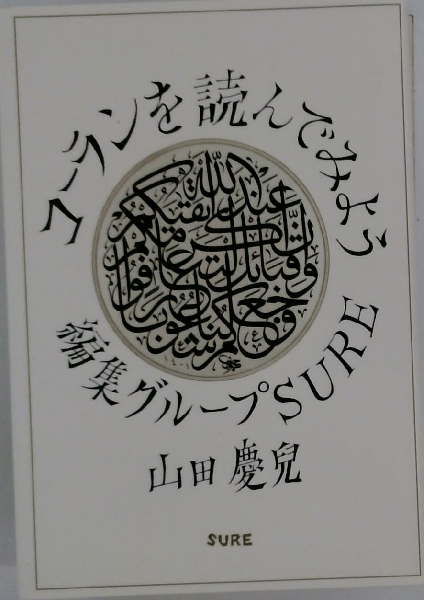 コーランを読んでみよう
編集グループSURE
山田慶兒
SURE